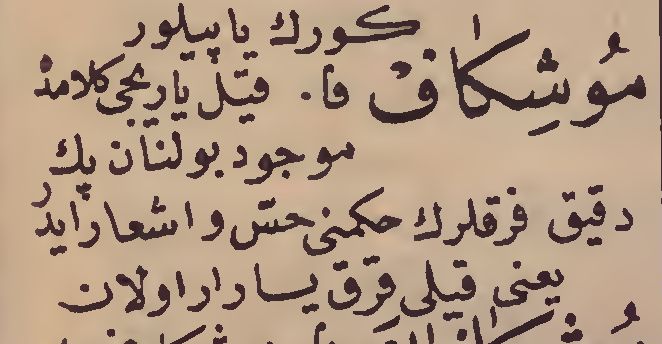 كورك ياپيلور
مُوشِكَافْ فا. قيل ياريجى كلامده
موجود بولنان پك
دقيق فرقلرك حكمنى حسّ و اشعار ايدر
يعنى قيلى قرق يارار اولان